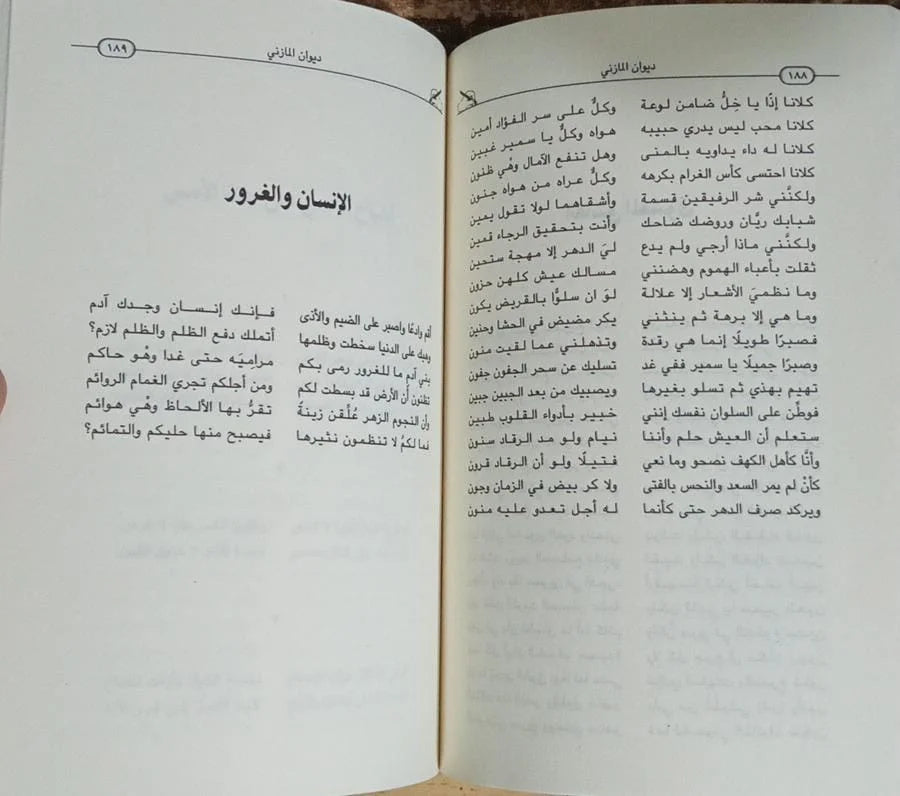 ١٨٨
ديوان المازني
كلانا إذًا يا خِلُّ ضامن لوعة وكلٌّ على سر الفؤاد أمين
كلانا محب ليس يدري حبيبه هواه وكلٌّ يا سمير غبين
كلانا له داء يداويه بالمنى وهل تنفع الآمال وهْي ظنون
كلانا احتسى كأس الغرام بكرهه وكلٌّ عراه من هواه جنون
ولكنَّني شر الرفيقين قسمة وأشقاهما لولا تقول يمين
شبابك ريَّان وروضك ضاحك وأنت بتحقيق الرجاء قمين
ولكنَّني ماذا أرجي ولم يدع ليَ الدهر إلا مهجة ستحين
ثقلت بأعباء الهموم وهضنني مسالك عيش كلهن حزون
وما نظميَ الأشعار إلا علالة لوَ ان سلوًّا بالقريض يكون
وما هي إلا برهة ثم ينثني يكر مضيض في الحشا وحنين
فصبرًا طويلًا إنما هي رقدة وتذهلني عما لقيت منون
وصبرًا جميلًا يا سمير ففي غد تسليك عن سحر الجفون جفون
تهيم بهذي ثم تسلو بغيرها ويصبيك من بعد الجبين جبين
فوطِّن على السلوان نفسك إنني خبير بأدواء القلوب طبين
ستعلم أن العيش حلم وأننا نيام ولو مد الرقاد سنون
وأنَّا كأهل الكهف نصحو وما نعي فتيلًا ولو أن الرقاد قرون
كأنْ لم يمر السعد والنحس بالفتى ولا كر بيض في الزمان وجون
ويركد صرف الدهر حتى كأنما له أجل تعدو عليه منون
ديوان المازني
١٨٩
الإنسان والغرور
أقم وادعًا واصبر على الضيم والأذى فإنك إنسان وجدك آدم
وهبك على الدنيا سخطت وظلمها أتملك دفع الظلم والظلم لازم؟
بني آدم ما للغرور رمى بكم مراميَه حتى غدا وهْو حاكم
تظنون أن الأرض قد بسطت لكم ومن أجلكم تجري الغمام الروائم
وأن النجوم الزهر عُلِّقن زينةً تقرُّ بها الألحاظ وهْي هوائم
فما لكمُ لا تنظمون نثيرها فيصبح منها حليكم والتمائم؟